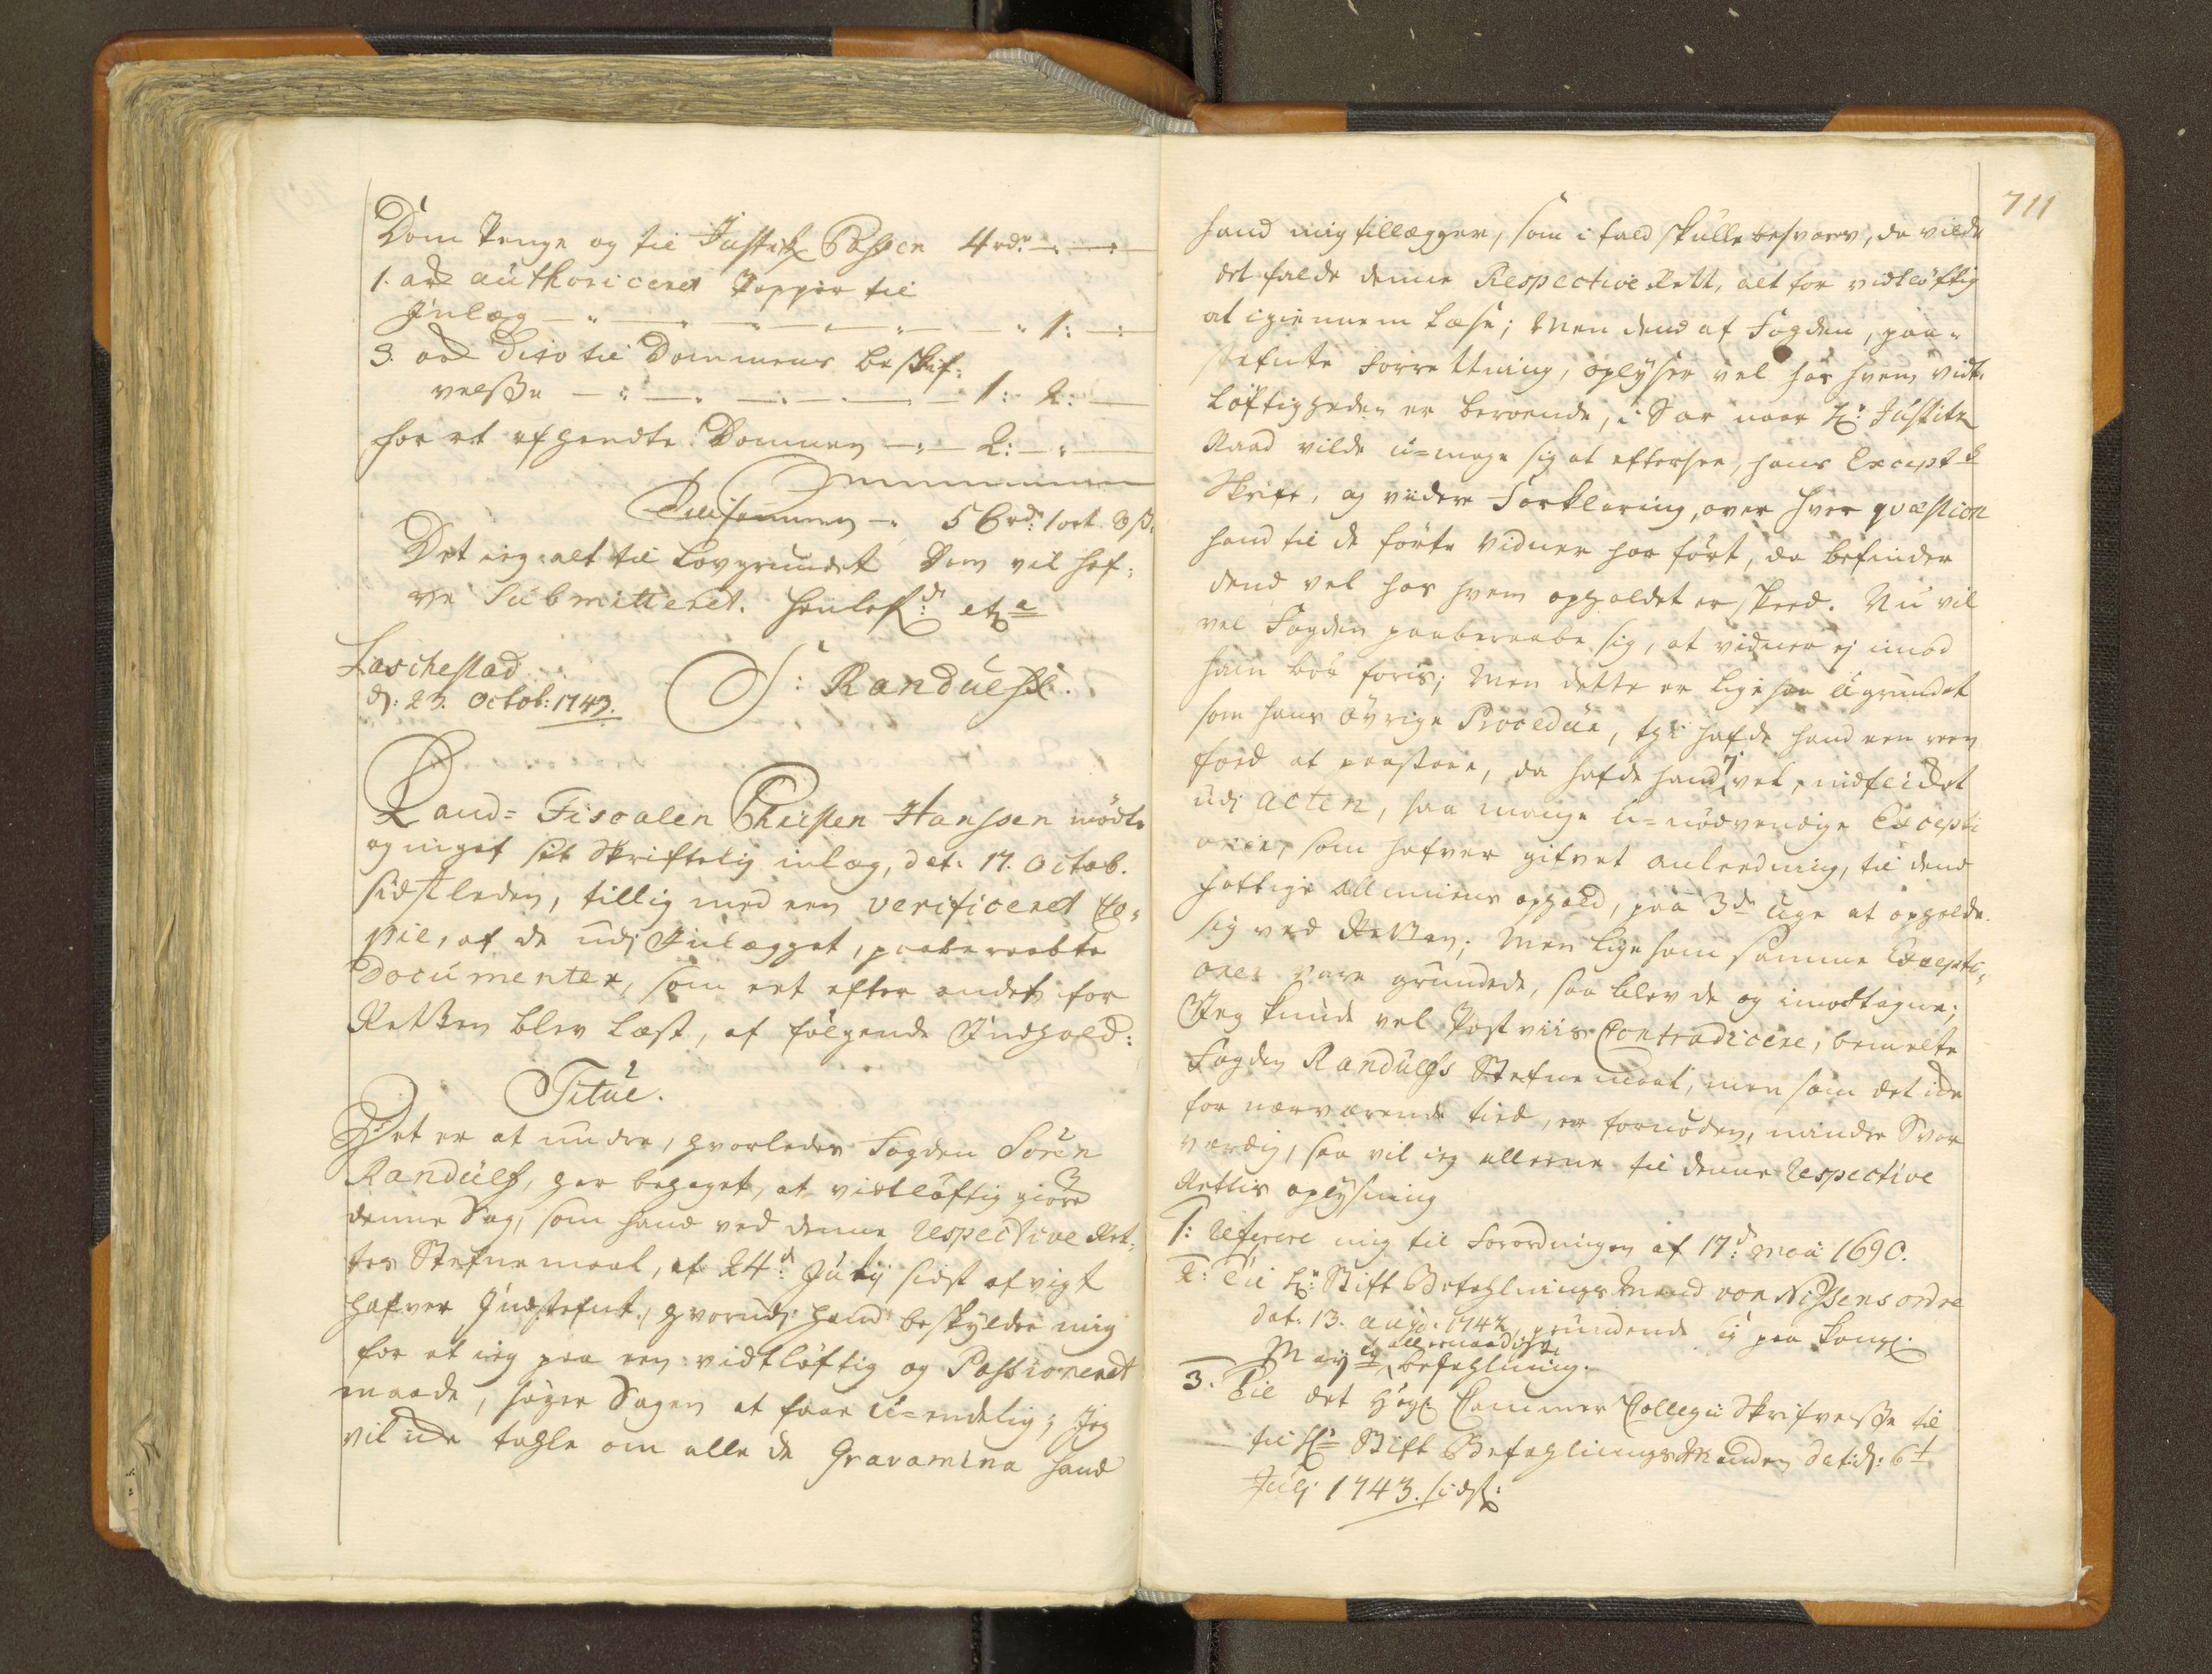 Dom Penge og til Justitz Cassen 4 rd: — : —
1. ark authoriceret Pappir til
Jnlæg — " — " — " — " — 1: — :
3. ark dito til Dommens beskrif-
velsse — : — . — : — . — 1: 2: —
for at afhændte Dommen — : — 2: — : —
Tilsammen — : 56 rd: 1 ort. 8 s.
Det ieg alt til Lovgrundet Dom vil haf-
ve Submitteret. henlefd: etc
Laschestad
d: 23. Octob: 1743.
S: Randulff.
Land= Fiscalen Christen Hanssen mødte
og inget sit Skriftelig inlæg, dat: 17. Octob.
sidstleden, tillig med een verificeret Co-
pie, af de udj Jnlægget, paaberaabte
Documenter, som eet efter andet for
Retten blev læst, af følgende Jndhold:
Titul.
Det er at undre, hvorledes Fogden Sørn
Randulff, har behaget, at vidtløftig giøre
denne Sag, som hand ved denne respective Ret-
tes Stefnemaal, af 24d: July sidst afvigt
hafver Jndstefnt, hvorudj hand beskylder mig
for at ieg paa een vidtløftig og Passioneret
maade, søger Sagen at faae u=endelig; Jeg
vil icke tahle om alle de Gravamina hand
711
hand mig tillægger, som i fald skulle besvares, da vilde
det falde denne Respective Rett, alt for vidtløftig
at igiennem læse; Men dend af Fogden, paa-
stefnte Forrettning, oplyser vel hos hvem vidt-
løftigheden er beroende, i Sær naar Hr: Justitz
Raad vilde u=mage sig at eftersee, hans Except
Skrift, og viidere Forklaring, over hver qvæstion
hand til de førte Vidner har ført, da befindes
dend vel hos hvem opholdet er skeed. Nu vil
vel Fogden paaberaabe sig, at vidner ej imod
ham bør føris; Men dette er lige saa ugrundet
som hans øvrige Procedur, thi hafde hand een reen
færd at paastaae, da hafde hand vel, indflidt
udj acten, saa mange u=nødvendige Excepti
oner, som hafver gifvet anleedning, til dend
fattige Allmues ophold, paa 3de Uge at opholde
sig ved Retten; Men lige som samme Excepti-
oner vare grundede, saa blev de og imodtagne;
Jeg kunde vel Post viis Contradicere, bemelte
Fogden Randulfs Stefnemaal, men som det icke
for nærværende tied, er fornøden, mindre Svar
værdig, saa vil ieg alleene til denne respective
Rettis oplysning
1: referere mig til Forordningen af 17d: maii 1690.
2: Til Hr: Stift Befahlnings Mand von Nissens ordre
dat: 13. aug: 1742, grundende sig paa Kongl:
May:ts allernaadigste befahlning.
3. Til det høyl: Cammer Collegii Skrifvelsse til
til Hr: Stift Befahlings Manden dat: d: 6t
Julj 1743. sidst: